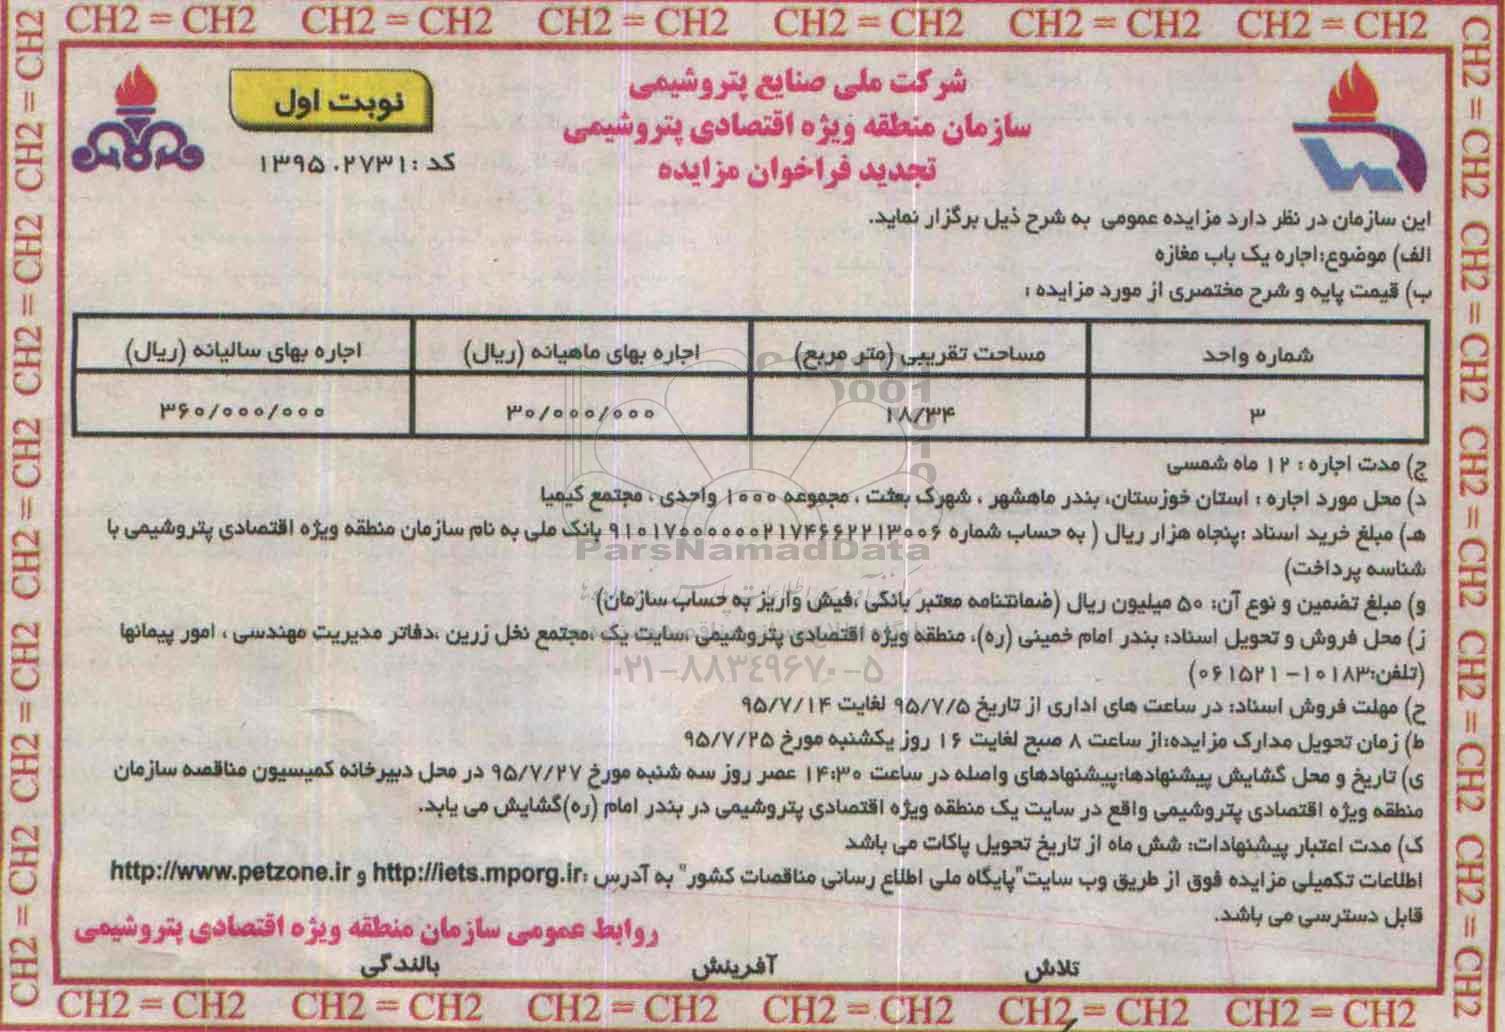 CH2 = CH2 CH2 = CH2 CH2 = CH2 CH2 = CH2 CH2 = CH2 CH2 = CH2
شرکت ملی صنایع پتروشیمی
سازمان منطقه ویژه اقتصادی پتروشیمی
تجدید فراخوان مزایده
نوبت اول
کد : ۱۳۹۵۰۲۷۳۱
این سازمان در نظر دارد مزایده عمومی به شرح ذیل برگزار نماید.
الف) موضوع:اجاره یک باب مغازه
ب) قیمت پایه و شرح مختصری از مورد مزایده :
شماره واحد | مساحت تقریبی (متر مربع) | اجاره بهای ماهیانه (ریال) | اجاره بهای سالیانه (ریال)
۳ | ۱۸/۳۴ | ۳۰/۰۰۰/۰۰۰ | ۳۶۰/۰۰۰/۰۰۰
ج) مدت اجاره : ۱۲ ماه شمسی
د) محل مورد اجاره : استان خوزستان، بندر ماهشهر ، شهرک بعثت ، مجموعه ۱۰۰۰ واحدی ، مجتمع کیمیا
هـ) مبلغ خرید اسناد :پنجاه هزار ریال ( به حساب شماره ۹۱۰۱۷۰۰۰۰۰۰۲۱۷۴۶۶۲۲۱۳۰۰۶ بانک ملی به نام سازمان منطقه ویژه اقتصادی پتروشیمی با
شناسه پرداخت)
و) مبلغ تضمین و نوع آن: ۵۰ میلیون ریال (ضمانتنامه معتبر بانکی ،فیش واریز به حساب سازمان)
ز) محل فروش و تحویل اسناد: بندر امام خمینی (ره)، منطقه ویژه اقتصادی پتروشیمی ،سایت یک ،مجتمع نخل زرین ،دفاتر مدیریت مهندسی ، امور پیمانها
(تلفن:۱۰۱۸۳-۰۶۱۵۲۱)
ح) مهلت فروش اسناد: در ساعت های اداری از تاریخ ۹۵/۷/۵ لغایت ۹۵/۷/۱۴
ط) زمان تحویل مدارک مزایده:از ساعت ۸ صبح لغایت ۱۶ روز یکشنبه مورخ ۹۵/۷/۲۵
ی) تاریخ و محل گشایش پیشنهادها:پیشنهادهای واصله در ساعت ۱۴:۳۰ عصر روز سه شنبه مورخ ۹۵/۷/۲۷ در محل دبیرخانه کمیسیون مناقصه سازمان
منطقه ویژه اقتصادی پتروشیمی واقع در سایت یک منطقه ویژه اقتصادی پتروشیمی در بندر امام (ره)گشایش می یابد.
ک) مدت اعتبار پیشنهادات: شش ماه از تاریخ تحویل پاکات می باشد
اطلاعات تکمیلی مزایده فوق از طریق وب سایت"پایگاه ملی اطلاع رسانی مناقصات کشور" به آدرس :http://iets.mporg.ir و http://www.petzone.ir
قابل دسترسی می باشد.
روابط عمومی سازمان منطقه ویژه اقتصادی پتروشیمی
تلاش آفرینش بالندگی
CH2 = CH2 CH2 = CH2 CH2 = CH2 CH2 = CH2 CH2 = CH2 CH2 = CH2
CH2 = CH2 CH2 = CH2 CH2 = CH2 CH2 = CH2 CH2 = CH2
CH2 = CH2 CH2 = CH2 CH2 = CH2 CH2 = CH2 CH2 = CH2
ParsNamadData
۰۲۱-۸۸۳۴۹۶۷۰-۵